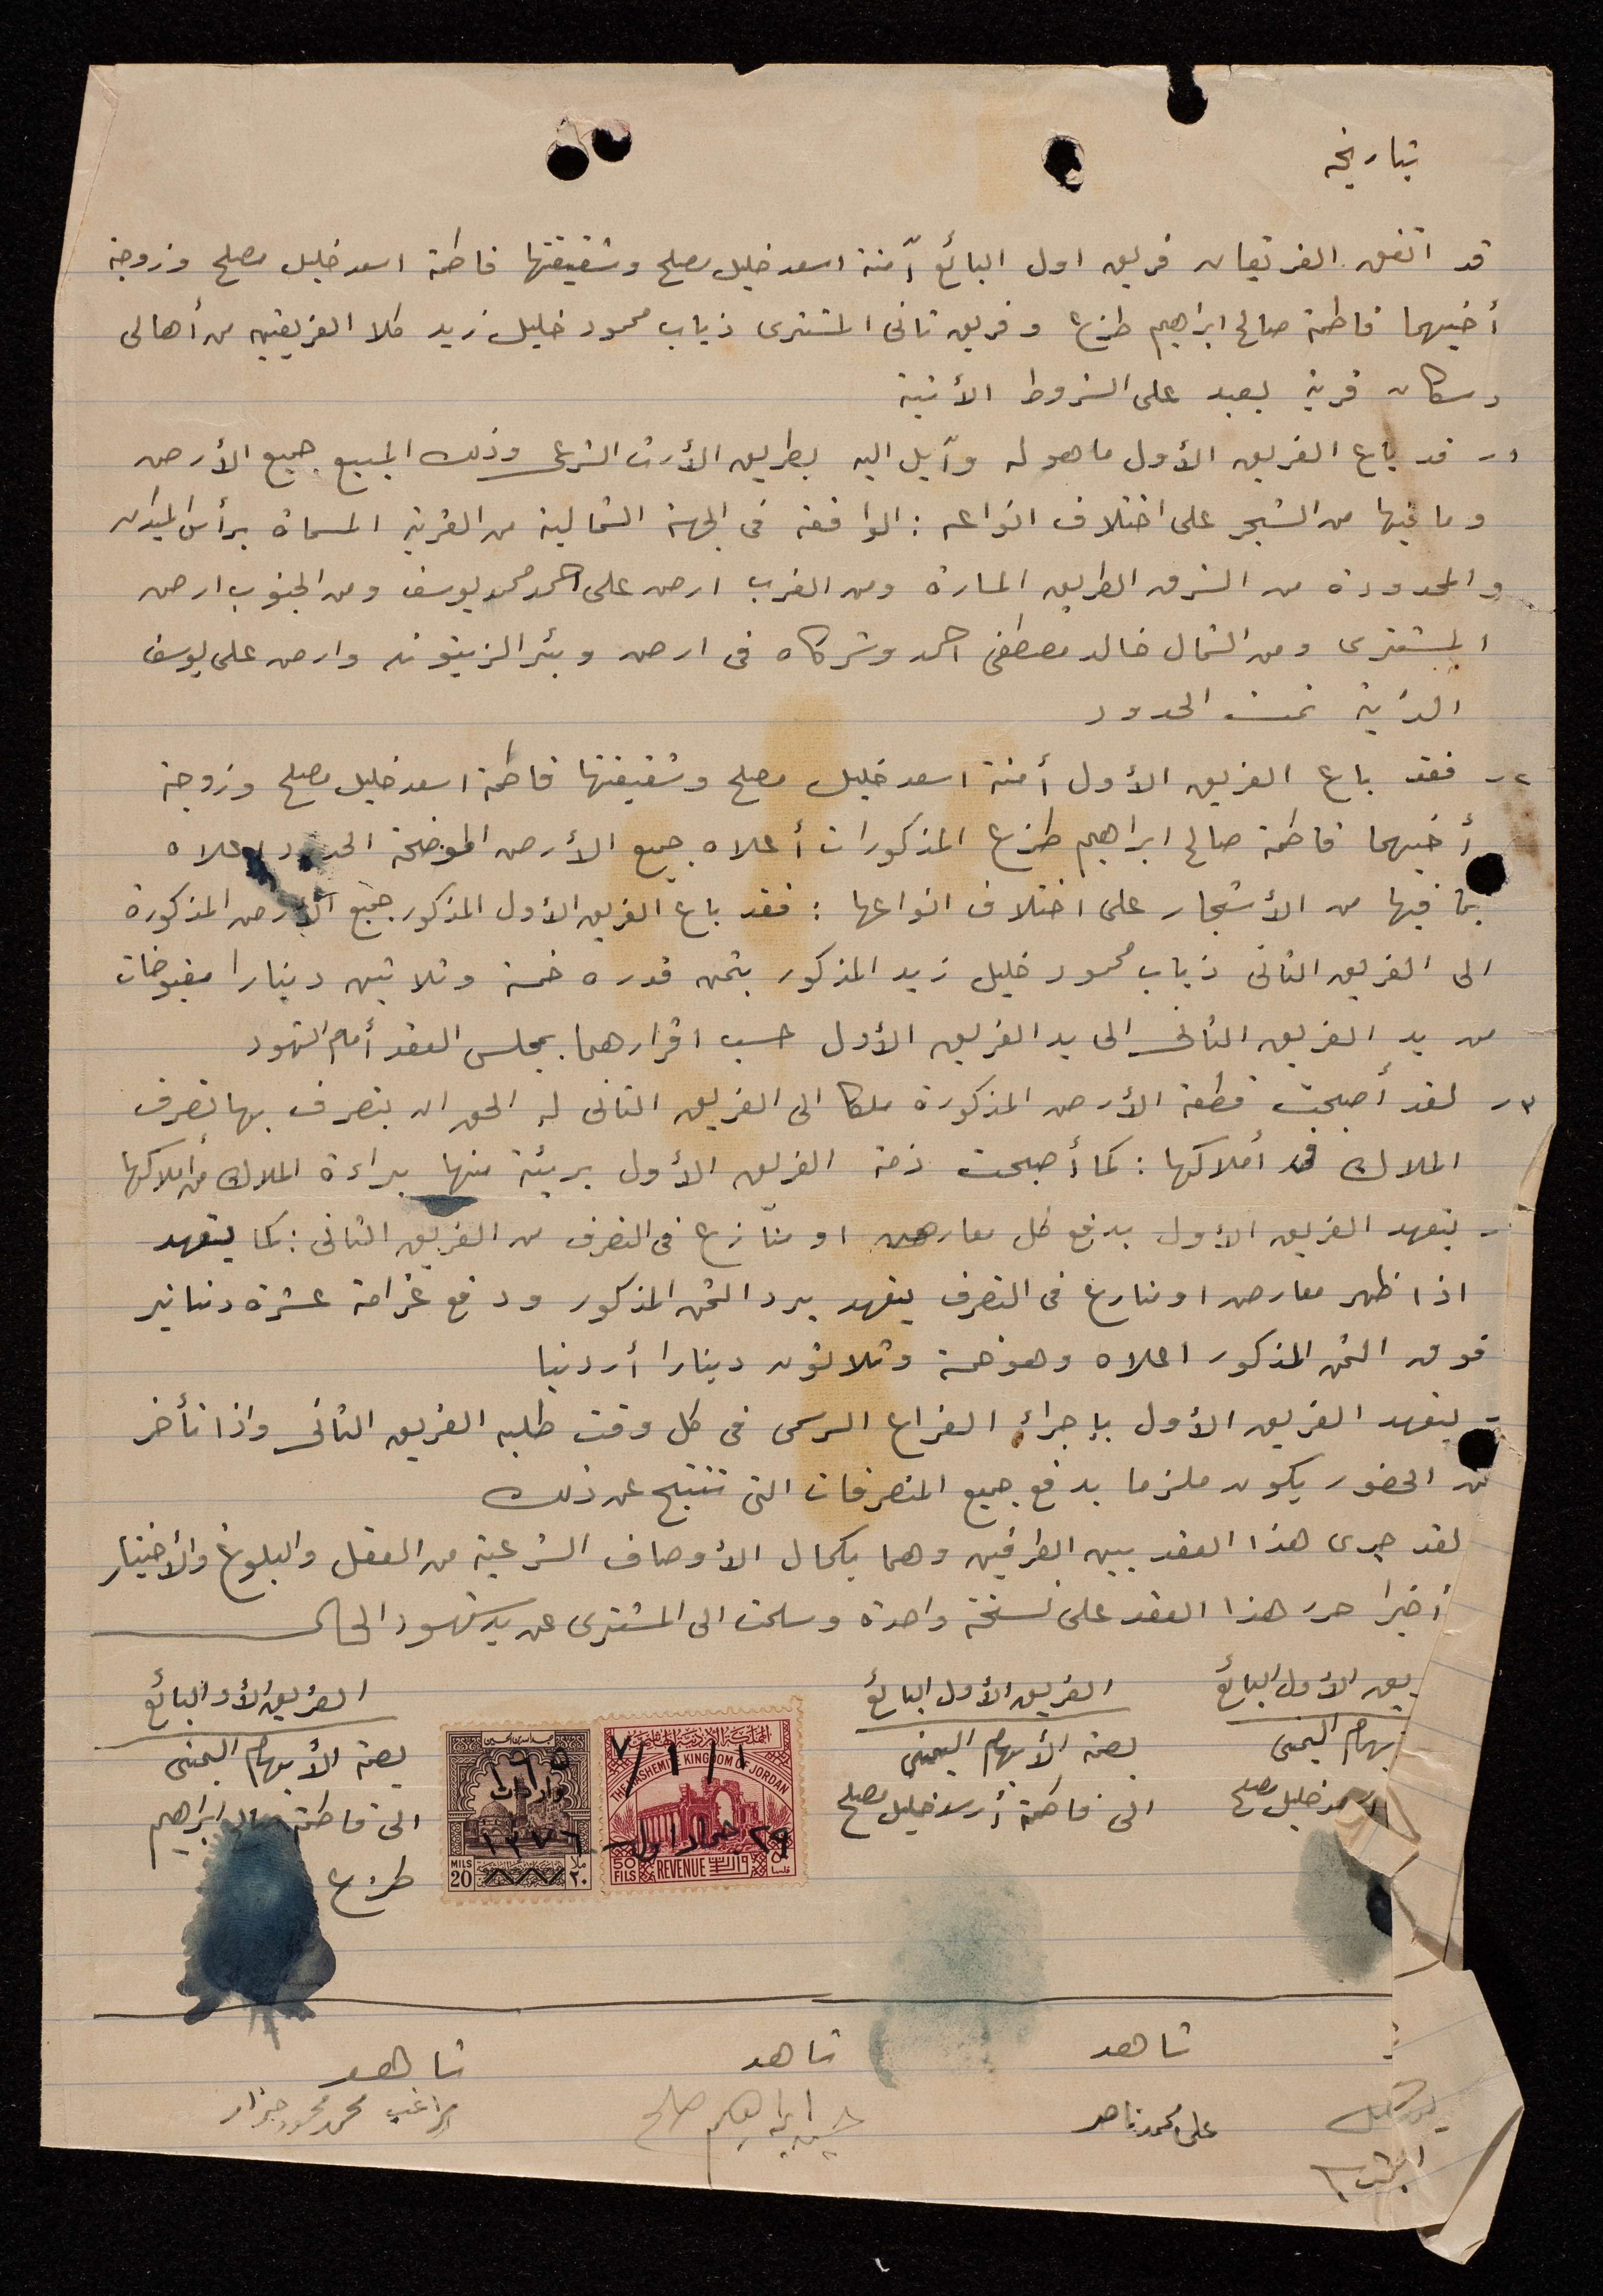 بتاريخه
قد اتفق الفريقان فريق اول البائع آمنة اسعد خليل مصلح وشقيقتها فاطمة اسعد خليل مصلح وزوجة
أخيهما فاطمة صالح ابراهيم طزع وفريق ثانى المشترى ذياب محمود خليل زيد كلا الفريقين من أهالى
وسكان قرية يعبد على الشروط الأتية
١- قد باع الفريق الأول ما هو له وآيل اليه بطريق الأرث الشرعى وذلك المبيع جميع الأرض
وما فيها من الشجر على اختلاف انواعه : الواقعة فى الجهة الشمالية من القرية المسماة برأس الميدان
والمحدودة من الشرق الطريق المارة ومن الغرب ارض على احمد محمد يوسف ومن الجنوب ارض
المشترى ومن الشمال خالد مصطفى احمد وشركاه فى ارض وبئر الزيتونه وارض على يوسف
تمت الحدود
٢- فقد باع الفريق الأول أمنة اسعد خليل مصلح وشقيقتها فاطمة اسعد خليل مصلح وزوجة
أخيهما فاطمة صالح ابراهيم طزع المذكورات أعلاه جميع الأرض الموضحة الحدود اعلاه
بما فيها من الأشجار على اختلاف انواعها : فقد باع الفريق الأول المذكور جميع الأرض المذكورة
الى الفريق الثانى ذياب محمود خليل زيد المذكور بثمن قدره خمسة وثلاثين دينارا مقبوضات
من يد الفريق الثانى الى يد الفريق الأول حسب اقرارهما بمجلس العقد أمام الشهود
٣- لقد أصبحت قطعة الأرض المذكورة ملكا الى الفريق الثانى له الحق ان يتصرف بها تصرف
الملاك فى أملاكها : كما أصبحت ذمة الفريق الأول بريئة منها براءة الملاك من املاكها
- يتعهد الفريق الأول بدفع كل معارض او منازع فى التصرف من الفريق الثانى : كما يتعهد
اذا ظهر معارض او منازع فى التصرف يتعهد برد الثمن المذكور ودفع غرامة عشرة دنانير
فوق الثمن المذكور اعلاه وهو خمسة وثلاثون دينارا أردنيا
- يتعهد الفريق الأول بإجراء الفراغ الرسمى فى كل وقت طلبه الفريق الثانى واذا تأخر
عن الحضور يكون ملزما بدفع جميع المتصرفات التى تنتج عن ذلك
لقد جرى هذا العقد بين الطرفين وهما بكمال الأوصاف الشرعية من العقل والبلوغ والاختيار
أخيرا حرر هذا العقد على نسخة واحدة وسلمت الى المشترى عن يد شهود الحال
يق الأول البائع
بهام اليمنى
اسعد خليل مصلح
الفريق الأول البائع
بصمة الأبهام اليمنى
الى فاطمة أسعد خليل مصلح
المملكة الأردنية الهاشمية
THE HASHEMITE KINGDOM OF JORDAN
٧/١/١
٢٩ جماد اول
50 FILS REVENUE ٥٠ فلسا
عبد الله بن الحسين
واردات
١٣٧٦
MILS 20 ٢٠ ملا
الفريق الأول البائع
بصمة الأبهام اليمنى
الى فاطمة صالح ابراهيم
طزع
شاهد
على محمد ناصر
شاهد
ابراهيم صلح
شاهد
راغب محمد محمود جرار